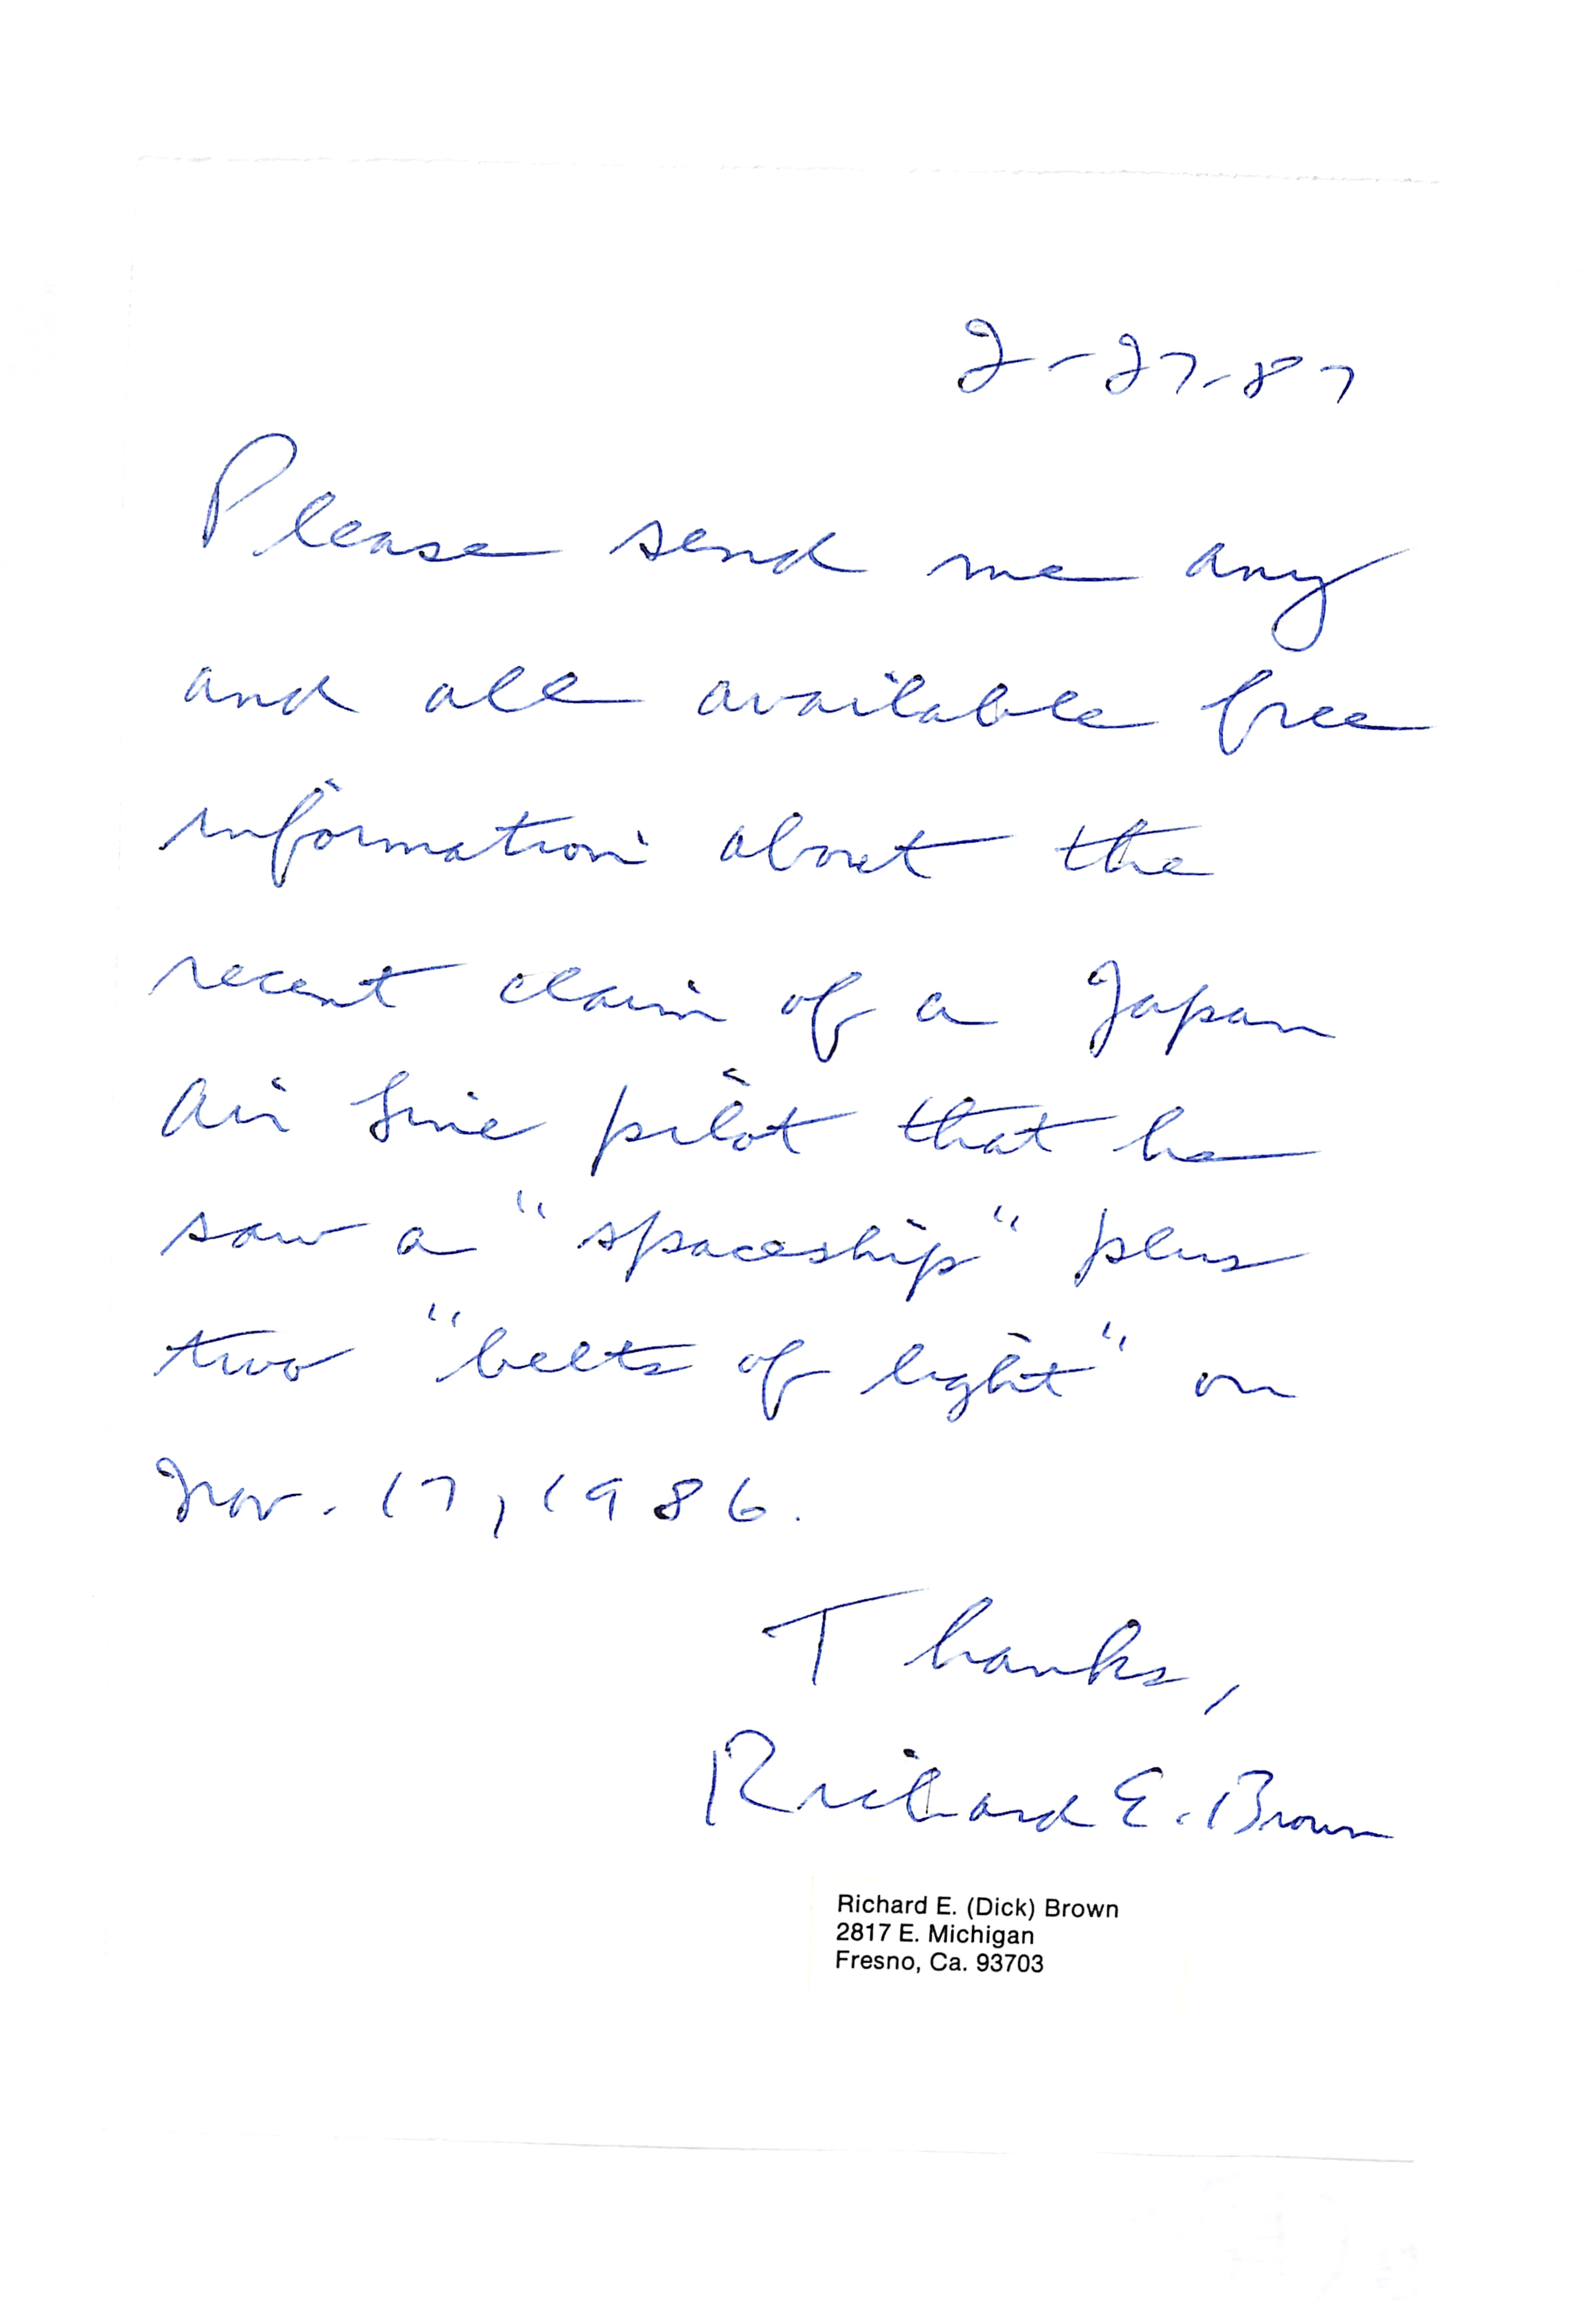 2-27-87
Please send me any
and all available free
information about the
recent claim of a Japan
Air Line pilot that he
saw a "spaceship" plus
two "belts of light" on
Nov. 17, 1986.
Thanks,
Richard E. Brown
Richard E. (Dick) Brown
2817 E. Michigan
Fresno, Ca. 93703